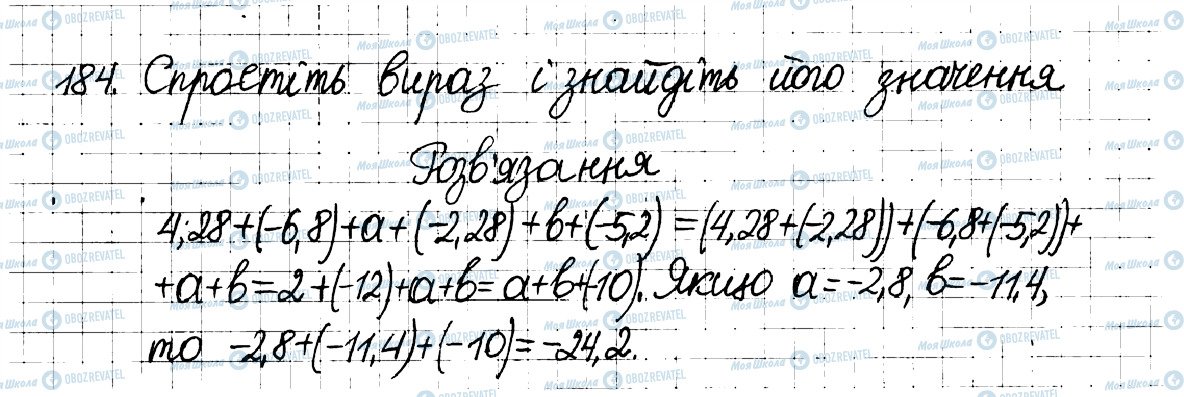 184. Спростіть вираз і знайдіть його значення
Розв'язання
4,28+(-6,8)+a+(-2,28)+b+(-5,2)=(4,28+(-2,28))+(-6,8+(-5,2))+
+a+b=2+(-12)+a+b=a+b+(-10). Якщо a=-2,8, b=-11,4,
то -2,8+(-11,4)+(-10)=-24,2.